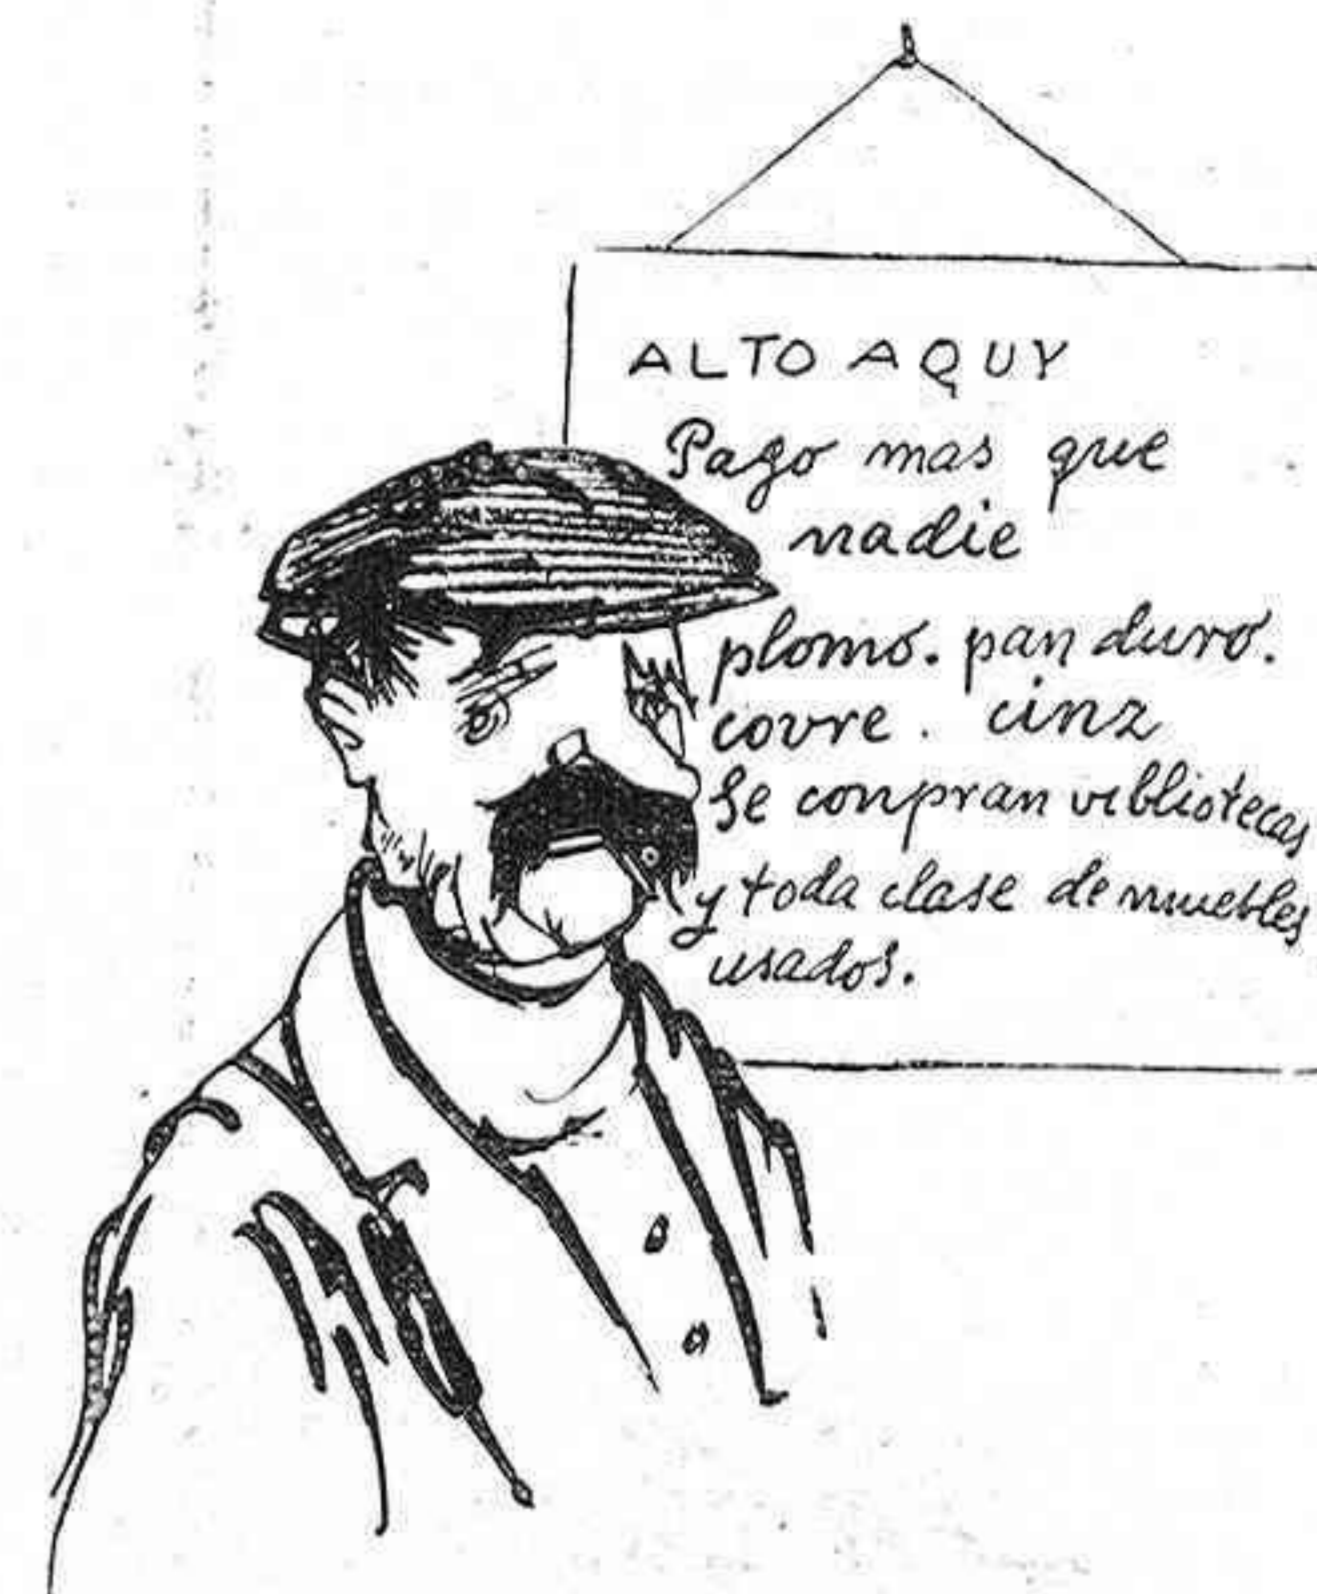 ALTO AQUY
Pago mas que
nadie
plomo. pan duro.
covre. cinz
Se conpran vibliotecas
y toda clase de muebles
usados.